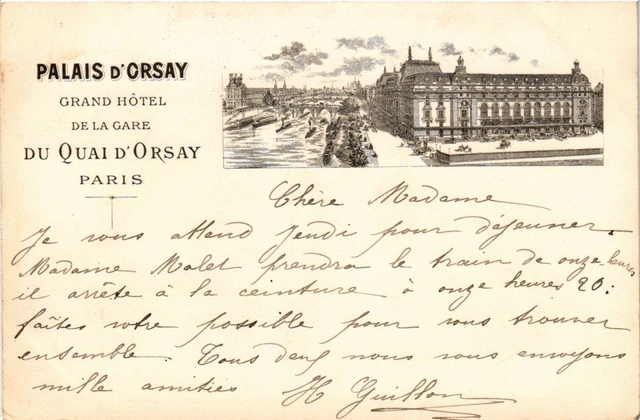 PALAIS D'ORSAY
GRAND HÔTEL
DE LA GARE
DU QUAI D'ORSAY
PARIS
Chère Madame
Je vous attend jeudi pour déjeuner.
Madame Malet prendra le train de onze heures
il arrête à la ceinture à onze heures 20:
faîtes votre possible pour vous trouver
ensemble. Tous deux nous vous envoyons
mille amitiés H Guillon